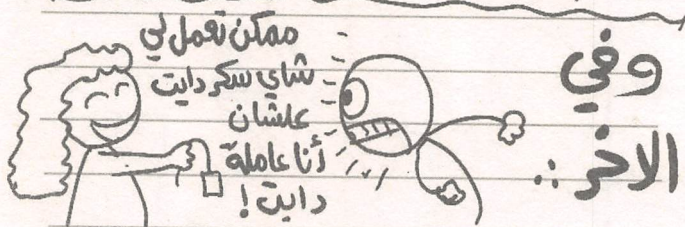 وفي
الاخر..
ممكن تعمل لي
شاي سكر دايت
علشان
أنا عاملة
دايت!